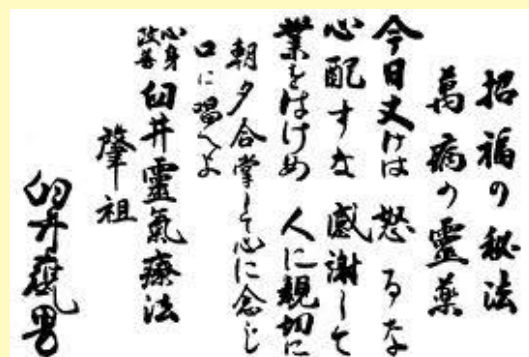 招福の秘法
萬病の靈薬
今日丈けは 怒るな
心配すな 感謝して
業をはげめ 人に親切に
朝夕合掌して心に念じ
口に唱へよ
心身
改善 臼井靈氣療法
肇祖
臼井甕男